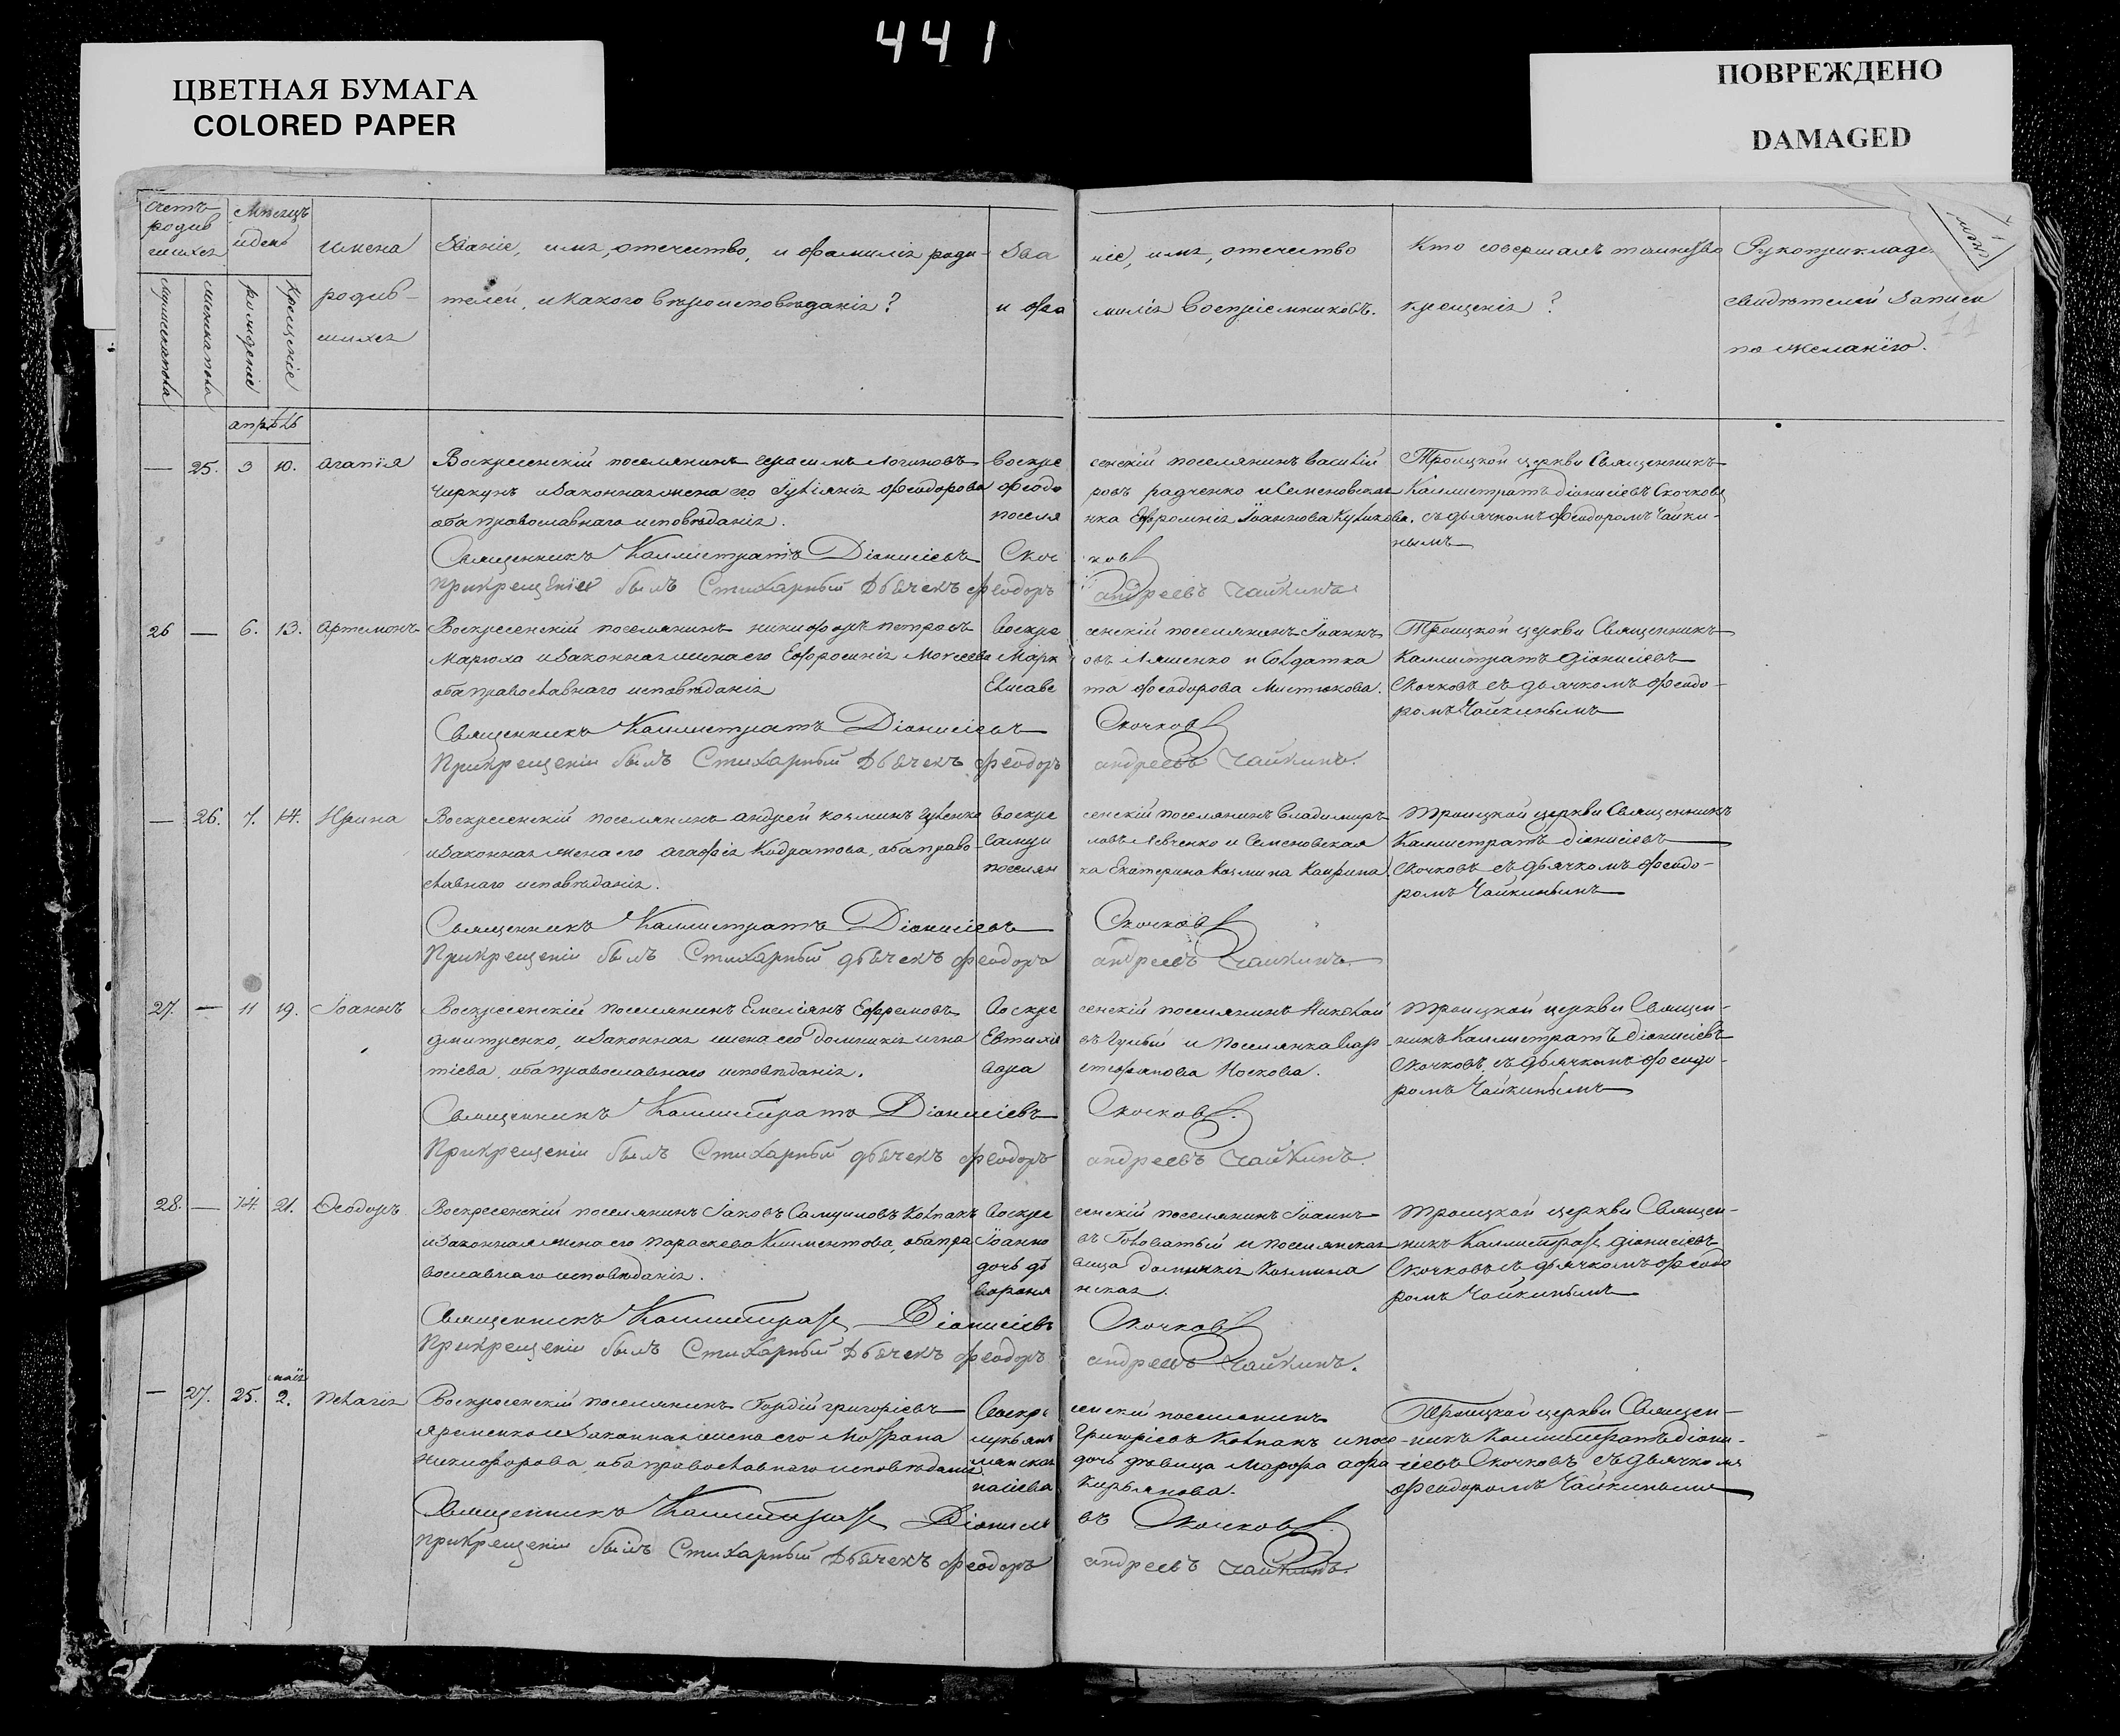 441
ЦВЕТНАЯ БУМАГА
COLORED PAPER
ПОВРЕЖДЕНО
DAMAGED
Счетъ родившихся
Мѣсяцъ и день
Имена родившихся
Званіе, имя, отечество, и фамилія роди-
телей, и какого вѣроисповѣданія?
Званіе, имя, отечество
и фамилія воспріемниковъ.
Кто совершалъ таинство
крещенія?
свидѣтелей записи
по желанію.
мужеска пола
женска пола
рожденіе
крещеніе
11
апрѣль
— 25. 3 10. Агапія
Воскресенскій поселянинъ Герасимъ Логиновъ
Чиркунъ и законная жена его Іуліянія Феодорова
оба православнаго исповѣданія.
Воскресенскій поселянинъ Василій
Феодоровъ Радченко и Семеновская
поселянка Евфросинія Іоаннова Куликова.
Троицкой церкви Священникъ
Каллистратъ Діонисіевъ Скочковъ
съ дьячкомъ Феодоромъ Чайки-
нымъ
Священникъ Каллистратъ Діонисіевъ Скочковъ
При крещеніи былъ Стихарный Дьячекъ Феодоръ Андреевъ Чайкинъ
26 — 6. 13. Артемонъ
Воскресенскій поселянинъ Никифоръ Петровъ
Марюха и законная жена его Евфросинія Моисеева
оба православнаго исповѣданія
Воскресенскій поселянинъ Іоаннъ
Марковъ Ляшенко и Солдатка
Елисавета Феодорова Мистюкова.
Троицкой церкви Священникъ
Каллистратъ Діонисіевъ
Скочковъ съ дьячкомъ Феодо-
ромъ Чайкинымъ
Священникъ Каллистратъ Діонисіевъ Скочковъ
При крещеніи былъ Стихарный Дьячекъ Феодоръ Андреевъ Чайкинъ.
— 26. 7. 14. Ирина
Воскресенскій поселянинъ Андрей Козминъ
и законная жена его Агафія Кодратова, оба право-
славнаго исповѣданія.
Воскресенскій поселянинъ Владимиръ
Самуиловъ Левченко и Семеновская
поселянка Екатерина Козмина
Троицкой церкви Священникъ
Каллистратъ Діонисіевъ
Скочковъ съ дьячкомъ Феодо-
ромъ Чайкинымъ
Священникъ Каллистратъ Діонисіевъ Скочковъ
При крещеніи былъ Стихарный дьячекъ Феодоръ Андреевъ Чайкинъ.
27. — 11 19. Іоаннъ
Воскресенскій поселянинъ Емеліянъ Ефремовъ
Дмитренко, и законная жена его Домникія Игна
тіева, оба православнаго исповѣданія.
Воскресенскій поселянинъ Николай
Евтихіевъ и поселянка Вар
вара Стефанова Носкова.
Троицкой церкви Священ-
никъ Каллистратъ Діонисіевъ
Скочковъ, съ дьячкомъ Феодо-
ромъ Чайкинымъ
Священникъ Каллистратъ Діонисіевъ Скочковъ.
При крещеніи былъ Стихарный дьячекъ Феодоръ Андреевъ Чайкинъ.
28. — 14. 21. Феодоръ
Воскресенскій поселянинъ Іаковъ Самуиловъ Колпакъ
и законная жена его Параскева Климентова, оба пра
вославнаго исповѣданія.
Воскресенскій поселянинъ Іоаннъ
Іоанновъ Головатый и поселянская
дочь дѣвица Домникія Козмина
Воронянская.
Троицкой церкви Священ-
никъ Каллистратъ Діонисіевъ
Скочковъ съ дьячкомъ Феодо
ромъ Чайкинымъ
Священникъ Каллистратъ Діонисіевъ Скочковъ
При крещеніи былъ Стихарный Дьячекъ Феодоръ Андреевъ Чайкинъ.
— 27. 25. мая 2. Пелагія
Воскресенскій поселянинъ Гордій Григоріевъ
Яременко и законная жена его Матрона
Никифорова, оба православнаго исповѣданія
Воскресенскій поселянинъ
Григоріевъ Колпакъ и посе
лянская дочь дѣвица Марфа Афа
насіева Кирьянова.
Троицкой церкви Священ-
никъ Каллистратъ Діони-
сіевъ Скочковъ съ дьячкомъ
Феодоромъ Чайкинымъ
Священникъ Каллистратъ Діонисіевъ Скочковъ.
При крещеніи былъ Стихарный Дьячекъ Феодоръ Андреевъ Чайкинъ.